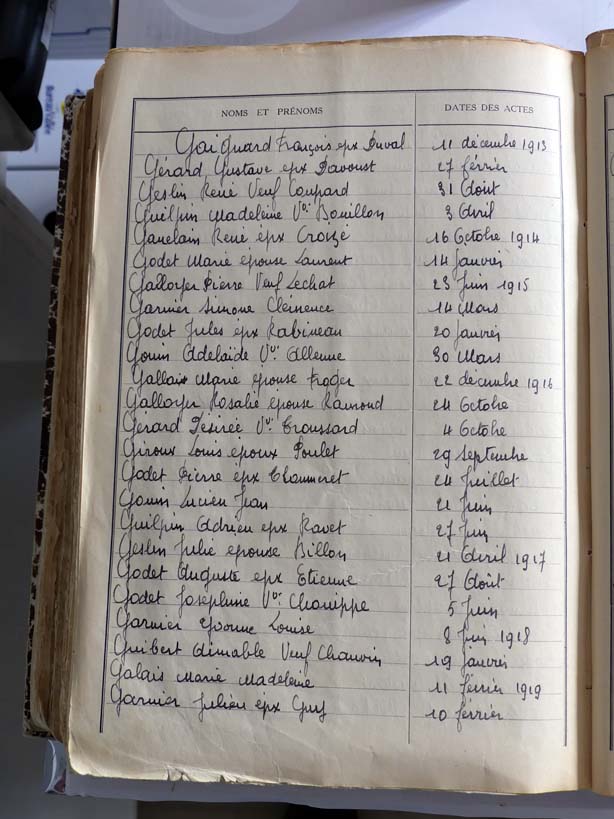 NOMS ET PRÉNOMS DATES DES ACTES
Gaignard François epx Duval 11 décembre 1913
Gérard Gustave epx Davoust 27 février
Geslin René Veuf Coupard 31 Août
Guilpin Madeleine Vve Bouillon 3 Avril
Ganelain René épx Croizé 16 Octobre 1914
Godet Marie épouse Laurent 14 Janvier
Galloyer Pierre Veuf Lechat 23 Juin 1915
Garnier Simone Clémence 14 Mars
Godet Jules épx Rabineau 20 Janvier
Gouin Adelaïde Vve Allenne 30 Mars
Gallais Marie épouse Froger 22 décembre 1916
Galloyer Rosalie épouse Raimond 24 Octobre
Gérard Désirée Vve Troussard 4 Octobre
Giroux Louis époux Poulet 29 Septembre
Godet Pierre épx Chaumeret 24 Juillet
Gouin Lucien Jean 21 Juin
Guilpin Adrien epx Ravet 27 Juin
Geslin Julie épouse Billon 21 Avril 1917
Godet Auguste epx Etienne 27 Août
Godet Joséphine Vve Charippe 5 Juin
Garnier Yvonne Louise 8 Juin 1918
Guibert Aimable Veuf Chauvin 19 Janvier
Galais Marie Madeleine 11 février 1919
Garnier Julien épx Guy 10 février